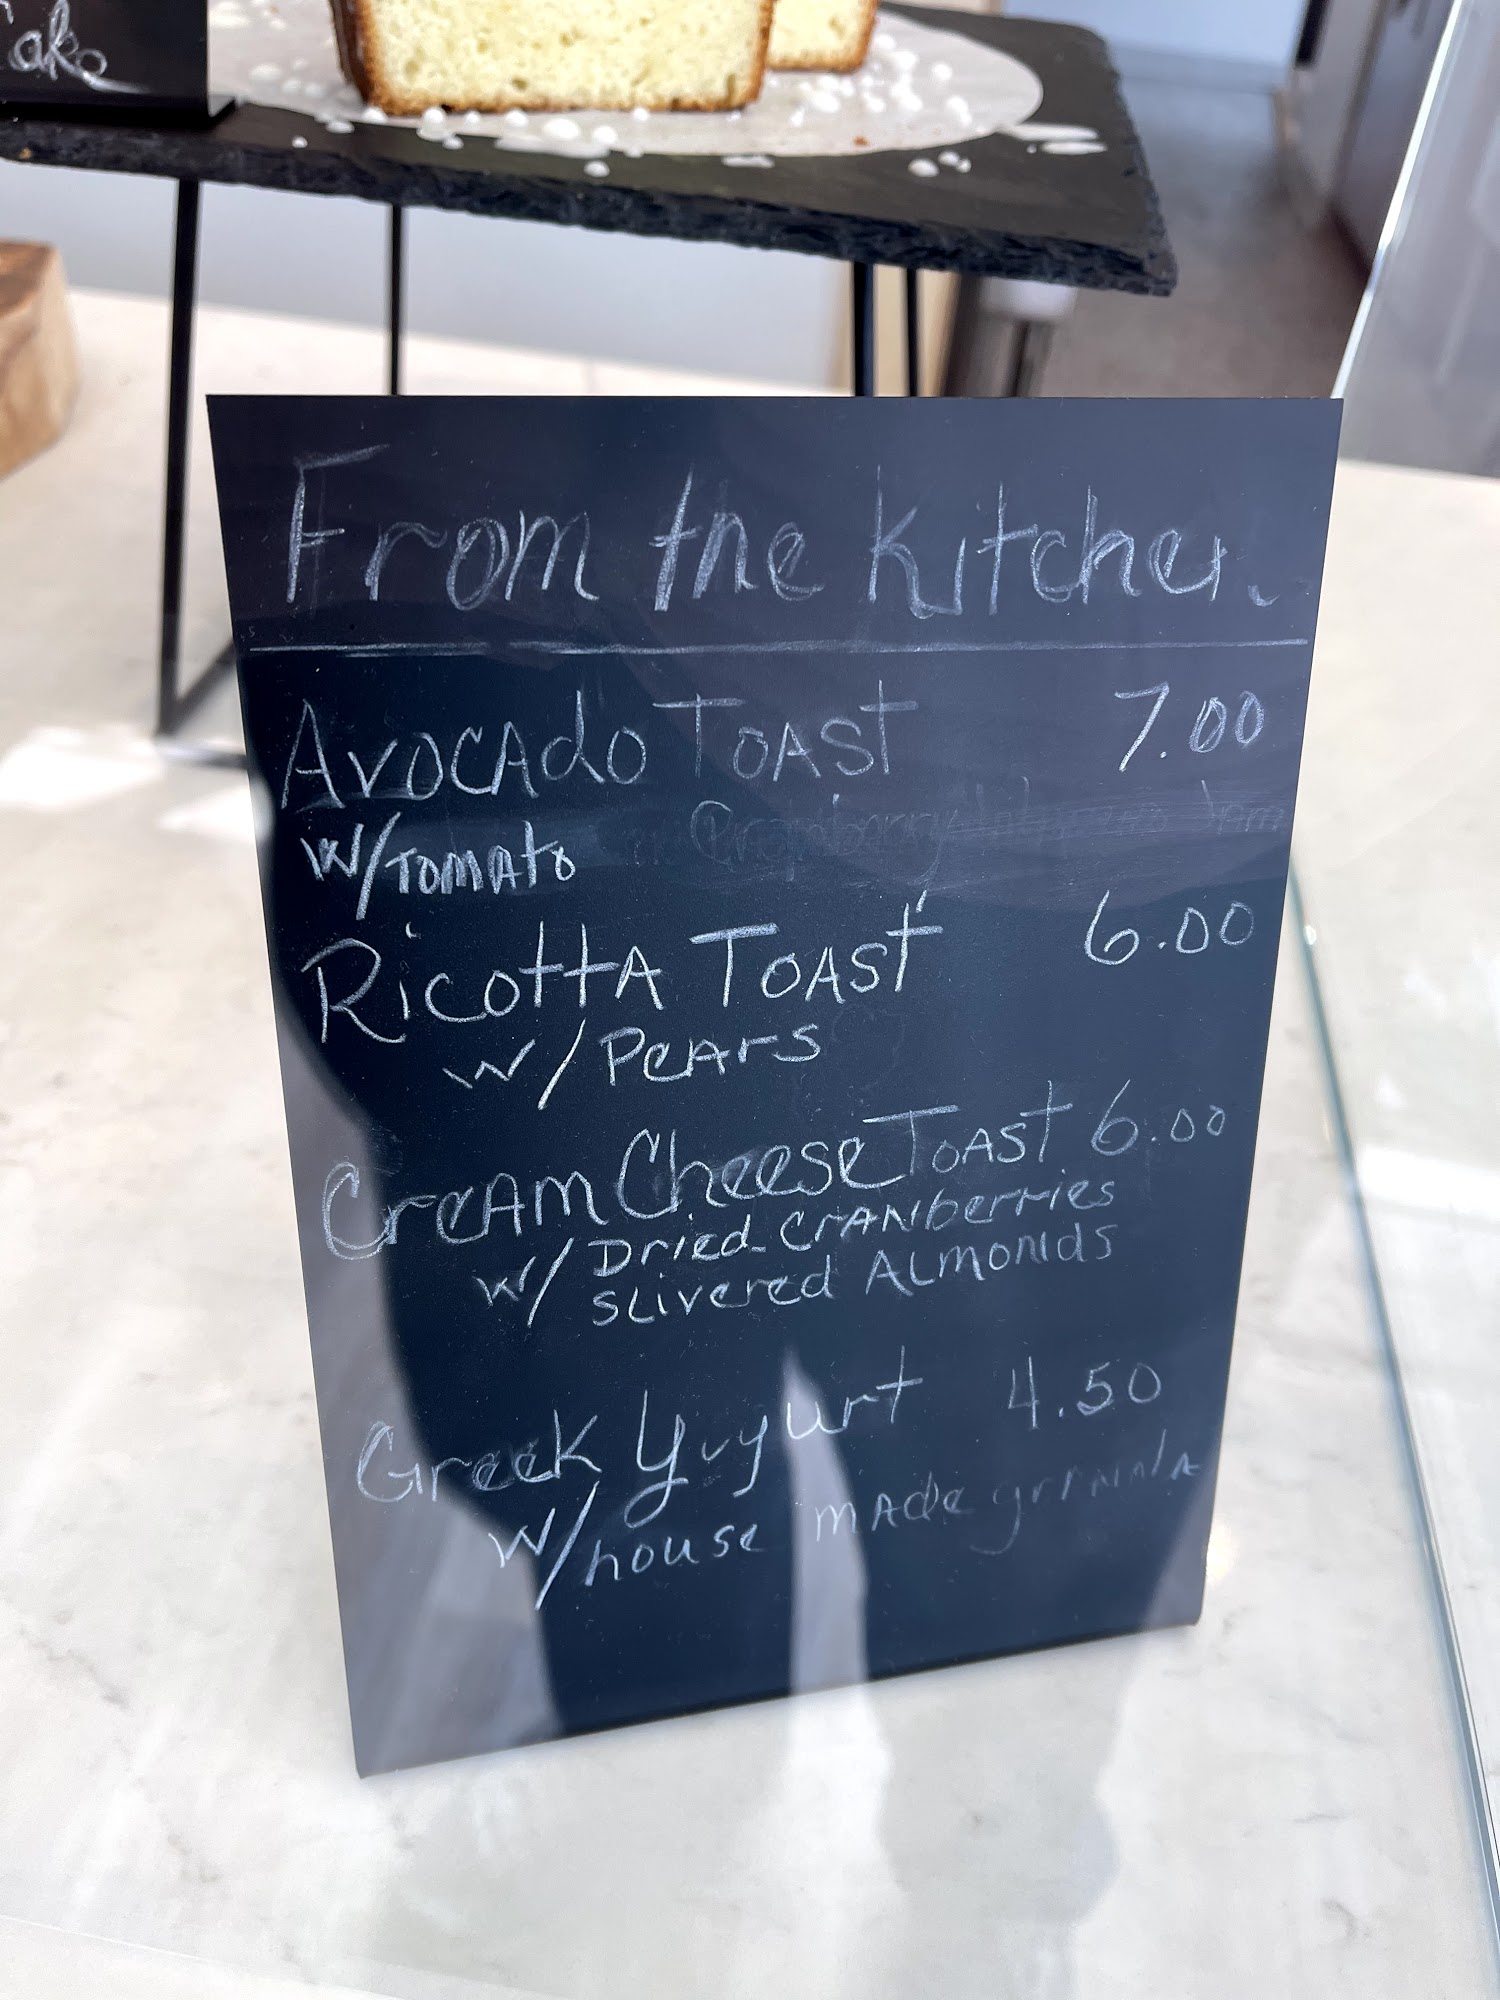 ake
From the Kitchen.
Avocado Toast 7.00
w/Tomato
Ricotta Toast 6.00
w/ Pears
Cream Cheese Toast 6.00
w/ Dried Cranberries
Slivered Almonds
Greek Yogurt 4.50
w/house made granola